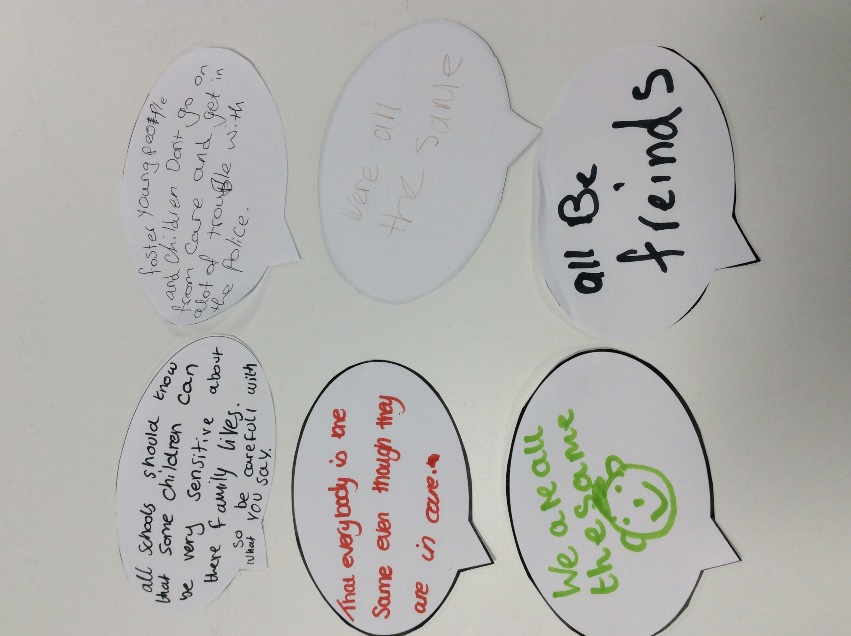 all schools should know
that some children can
be very sensitive about
there family lives.
so be carefull with
what you say.
foster young people
and children Dont go on
from care and get in
alot of trouble with
the police.
That everybody is the
Same even though they
are in care.
were all
the same
We are all
the same
all Be
freinds